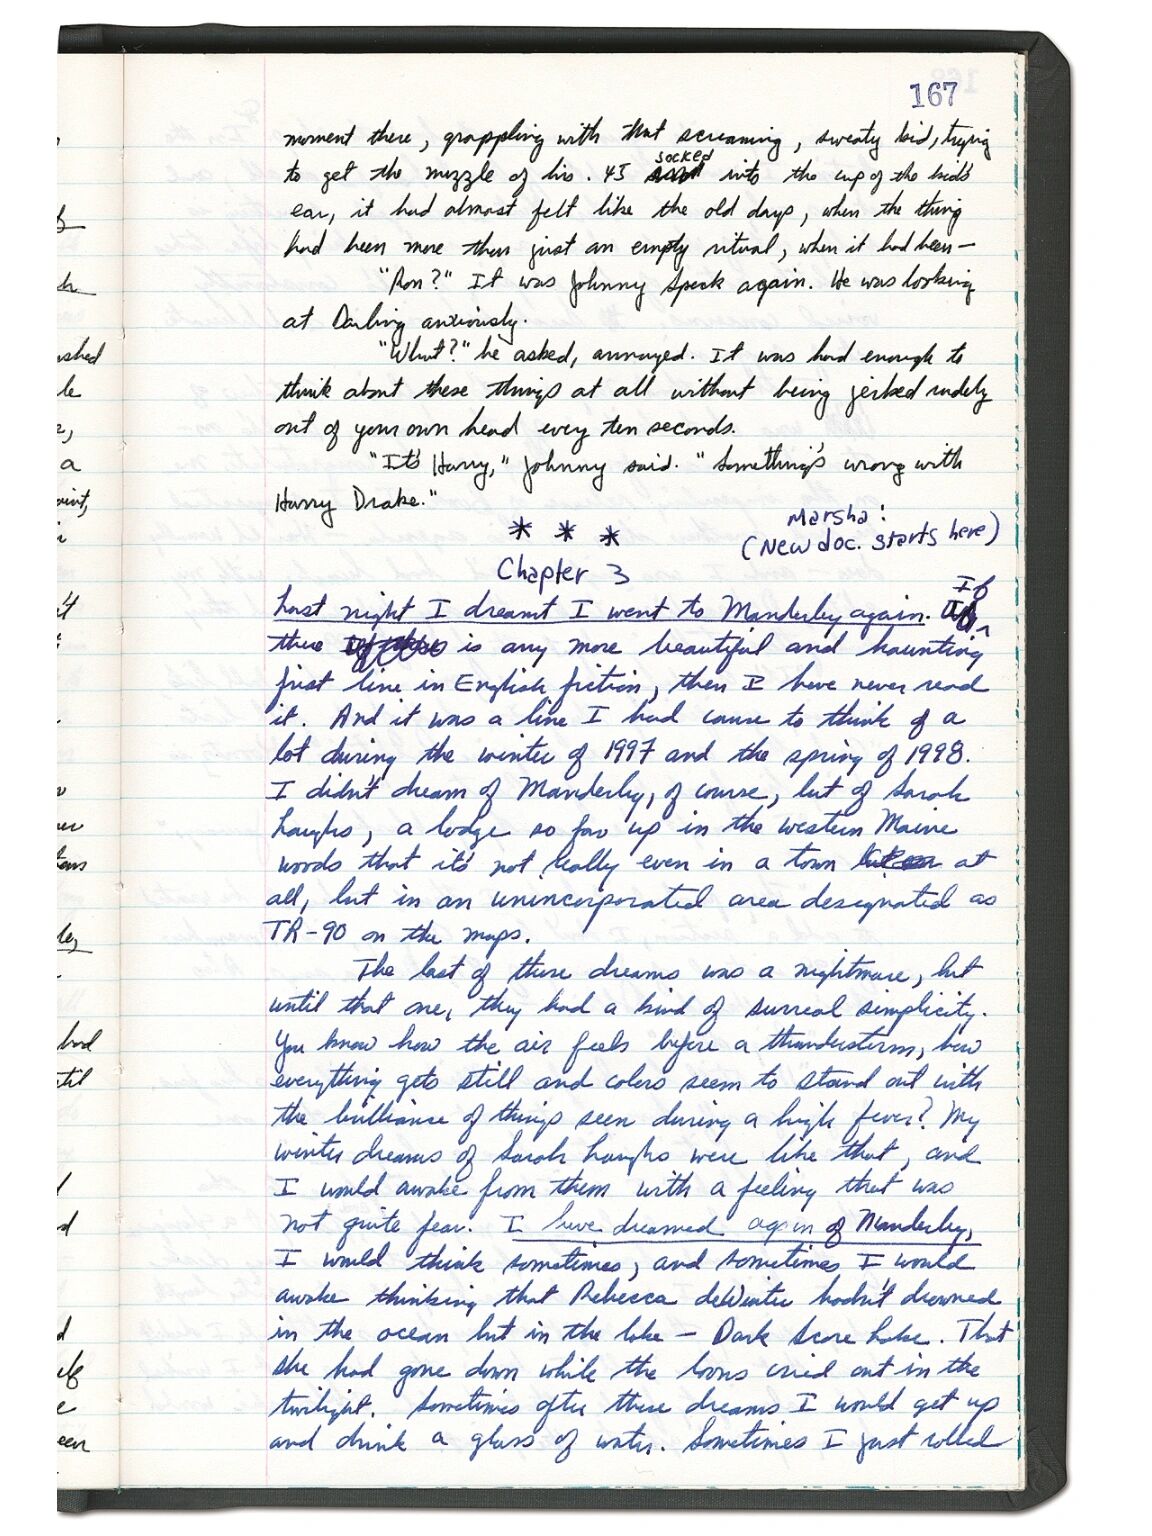 167
moment there, grappling with that screaming, sweaty kid, trying
socked
to get the muzzle of his .45 into the cup of the kid's
ear, it had almost felt like the old days, when the thing
had been more than just an empty ritual, when it had been—
"Ron?" It was Johnny Speck again. He was looking
at Darling anxiously.
"What?" he asked, annoyed. It was hard enough to
think about these things at all without being jerked rudely
out of your own head every ten seconds.
"It's Harry," Johnny said. "Something's wrong with
Harry Drake."
* * *
Marsha:
(New doc. starts here)
Chapter 3
If
Last night I dreamt I went to Manderley again.
there is any more beautiful and haunting
first line in English fiction, then I have never read
it. And it was a line I had cause to think of a
lot during the winter of 1997 and the spring of 1998.
I didn't dream of Manderley, of course, but of Sarah
Laughs, a lodge so far up in the western Maine
woods that it's not really even in a town at
all, but in an unincorporated area designated as
TR-90 on the maps.
The last of these dreams was a nightmare, but
until that one, they had a kind of surreal simplicity.
You know how the air feels before a thunderstorm, how
everything gets still and colors seem to stand out with
the brilliance of things seen during a high fever? My
winter dreams of Sarah Laughs were like that, and
I would awake from them with a feeling that was
not quite fear. I have dreamed again of Manderley,
I would think sometimes, and sometimes I would
awake thinking that Rebecca deWinter hadn't drowned
in the ocean but in the lake — Dark Score Lake. That
she had gone down while the loons cried out in the
twilight. Sometimes after these dreams I would get up
and drink a glass of water. Sometimes I just rolled